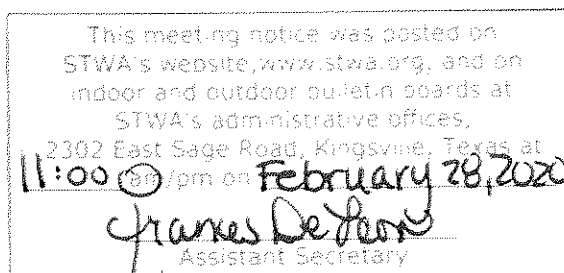 This meeting notice was posted on
STWA's website, www.stwa.org, and on
indoor and outdoor bulletin boards at
STWA's administrative offices,
2302 East Sage Road, Kingsville, Texas at
11:00 am/pm on February 28, 2020
Frances De Leon
Assistant Secretary